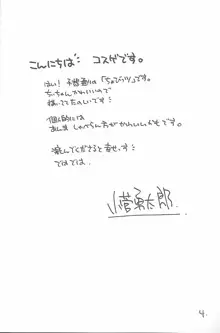 こんにちは コスゲです。
はい! 予告通り「ちょびッツ」です。
ちぃちゃんかわいいので
描いてて たのしいです!
個人的には
あんま しゃべらん方が かわいいかもです。
楽しんでくださると幸せっす!
ではでは。
小菅勇太郎
4.